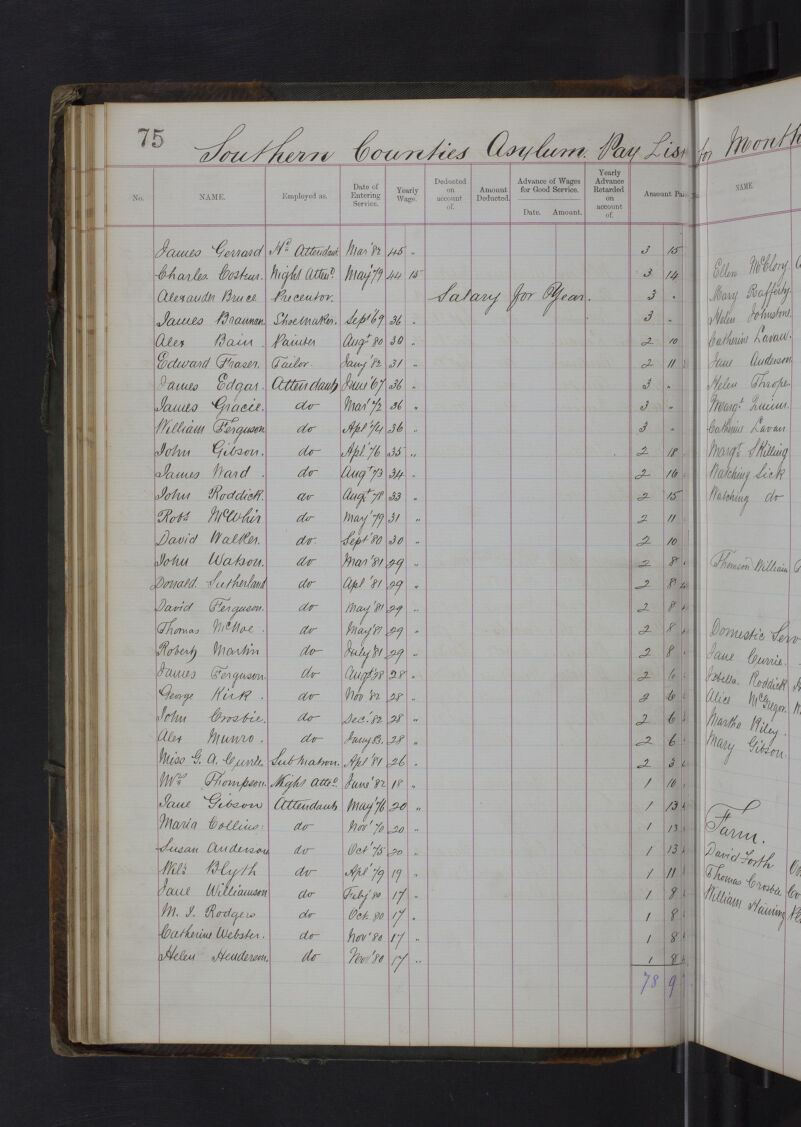 75
Southern Counties Asylum. Pay List for Month
No. NAME. Employed as. Date of Entering Service. Yearly Wage. Deducted on account of. Amount Deducted. Advance of Wages for Good Service. Date. Amount. Yearly Advance Retarded on account of. Amount Paid
James Gerrard Hd. Attendant Mar '82 45 " 3 15
Charles Costeur. Night Attent. May '79 44 15 3 14
Alexander Bruce Precentor. Salary for Year. 3 "
James Brannan Shoemaker. Sept '69 36 " 3 "
Alex Bain Painter Augt 80 30 " 2 10
Edward Fraser. Tailor. Jany '82 31 " 2 11
James Edgar. Attendants June '67 36 " 3 "
James Gracie. do Mar '72 36 " 3 "
William Ferguson do Apl '74 36 " 3 "
John Gibson. do Apl '76 35 " 2 18
James Ward. do Augt '73 34 " 2 16
John Roddick. do Augt '78 33 " 2 15
Robt McWhir do May '79 31 " 2 11
David Walker. do Sept '80 30 " 2 10
John Watson. do Mar '81 29 " 2 8
Donald Sutherland do Apl '81 29 " 2 8
David Ferguson. do May '81 29 " 2 8
Thomas do May '81 29 " 2 8
Robert Martin do July '81 29 " 2 8
James Ferguson do Augt '78 28 " 2 6
George Kirk. do Nov '82 28 " 2 6
John Crosbie. do Dec. '82 28 " 2 6
Alex Munro. do Jany 28 " 2 6
Miss G. A. Currie. Sub Matron. Apl '81 26 " 2 3
Mrs Thompson. Night Atte. June '82 18 " 1 10
Jane Gibson Attendants May '76 20 " 1 13
Maria Collins. do Nov '76 20 " 1 13
Susan Anderson do Oct '75 20 " 1 13
Blyth do Apl '79 19 " 1 11
Jane Williamson do Feby '80 17 " 1 8
M. J. Rodgers do Oct. 80 17 " 1 8
Catherine Webster. do Nov '80 17 " 1 8
Helen Henderson. do Nov '80 17 " 1 8
78 9
No. NAME
Ellen McClory.
Mary Rafferty.
Helen Johnstone
Catherine Lavan.
Jane Anderson
Helen Thrope
Margt Quinn
Catherine Lavan
Margt Skilling
Watching Sick
Watching do
Thomson William
Domestic Serv
Jane Currie.
Isbella Roddick
Alice McGregor.
Martha Riley.
Mary Gibson.
Farm.
David Forth
Thomas Crosbie
William